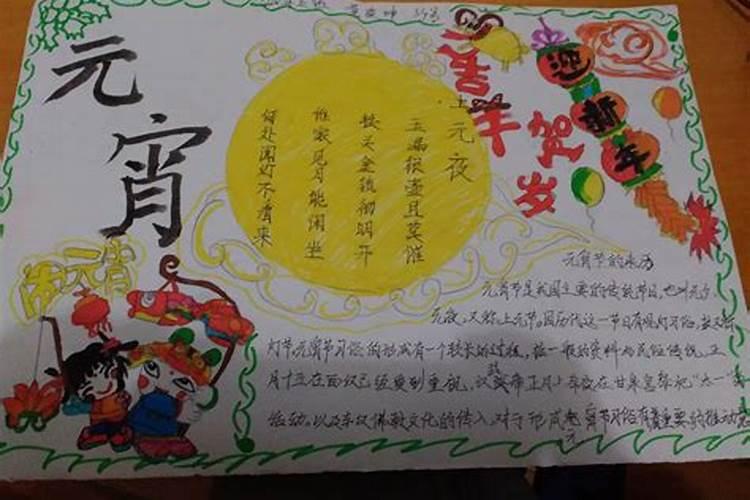 元宵
上元夜
玉漏银壶且莫催
铁关金锁彻明开
谁家见月能闲坐
何处闻灯不看来
喜羊
贺岁
迎新年
闹元宵
元宵节的来历
元宵节是我国主要的传统节日,也叫元夕、
元夜,又称上元节。因历代这一节日有观灯习俗,故又称
灯节。元宵节习俗的形成有一个较长的过程,据一般的资料与民俗传说,正
月十五在西汉已经受到重视,汉武帝正月上辛夜在甘泉宫祭祀“太一”
活动。以及东汉佛教文化的传入,对于形成元宵节习俗有着重要的推动意